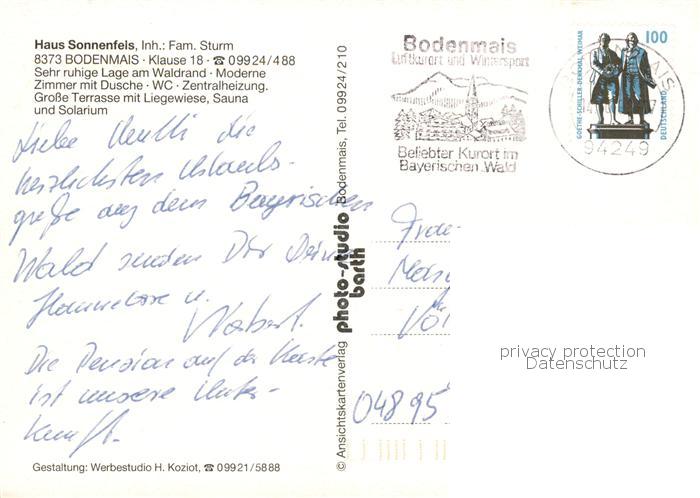 Haus Sonnenfels, Inh.: Fam. Sturm
8373 BODENMAIS · Klause 18 · ☎ 09924/488
Sehr ruhige Lage am Waldrand · Moderne
Zimmer mit Dusche · WC · Zentralheizung.
Große Terrasse mit Liegewiese, Sauna
und Solarium
Liebe die
herzlichsten Urlaubs-
grüße aus dem Bayerischen
Wald senden Dir Deine
Hannelore u.
Norbert.
Die Pension auf der Karte
ist unsere Unter-
kunft.
Gestaltung: Werbestudio H. Koziot, ☎ 09921/5888
© Ansichtskartenverlag photo-studio barth Bodenmais, Tel. 09924/210
Bodenmais
Luftkurort und Wintersport
Beliebter Kurort im
Bayerischen Wald
94249
GOETHE-SCHILLER-DENKMAL WEIMAR
100
DEUTSCHLAND
Frau
04895
privacy protection
Datenschutz